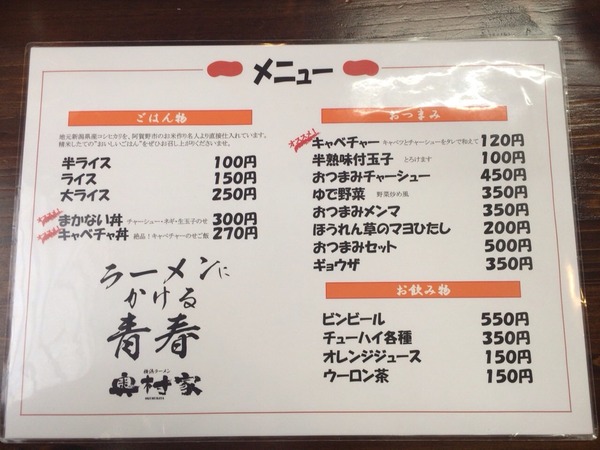 メニュー
ごはん物
地元新潟県産コシヒカリを、阿賀野市のお米作り名人より直接仕入れています。
精米したての"おいしいごはん"をぜひお召し上がりくださいませ。
半ライス 100円
ライス 150円
大ライス 250円
まかない丼 チャーシュー・ネギ・生玉子のせ 300円
キャベチャ丼 絶品!キャベチャーのせご飯 270円
ラーメンに
かける
青春
横浜ラーメン
奥村家
おつまみ
オススメ!
キャベチャー キャベツとチャーシューをタレで和えて 120円
半熟味付玉子 とろけます 100円
おつまみチャーシュー 450円
ゆで野菜 野菜炒め風 350円
おつまみメンマ 350円
ほうれん草のマヨひたし 200円
おつまみセット 500円
ギョウザ 350円
お飲み物
ビンビール 550円
チューハイ各種 350円
オレンジジュース 150円
ウーロン茶 150円